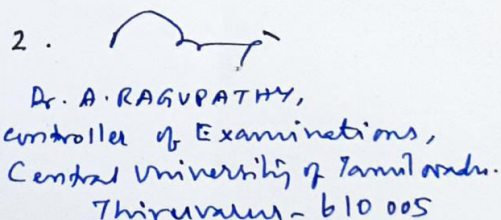 2.
Dr. A. RAGUPATHY,
Controller of Examinations,
Central University of Tamil Nadu.
Thiruvarur - 610 005